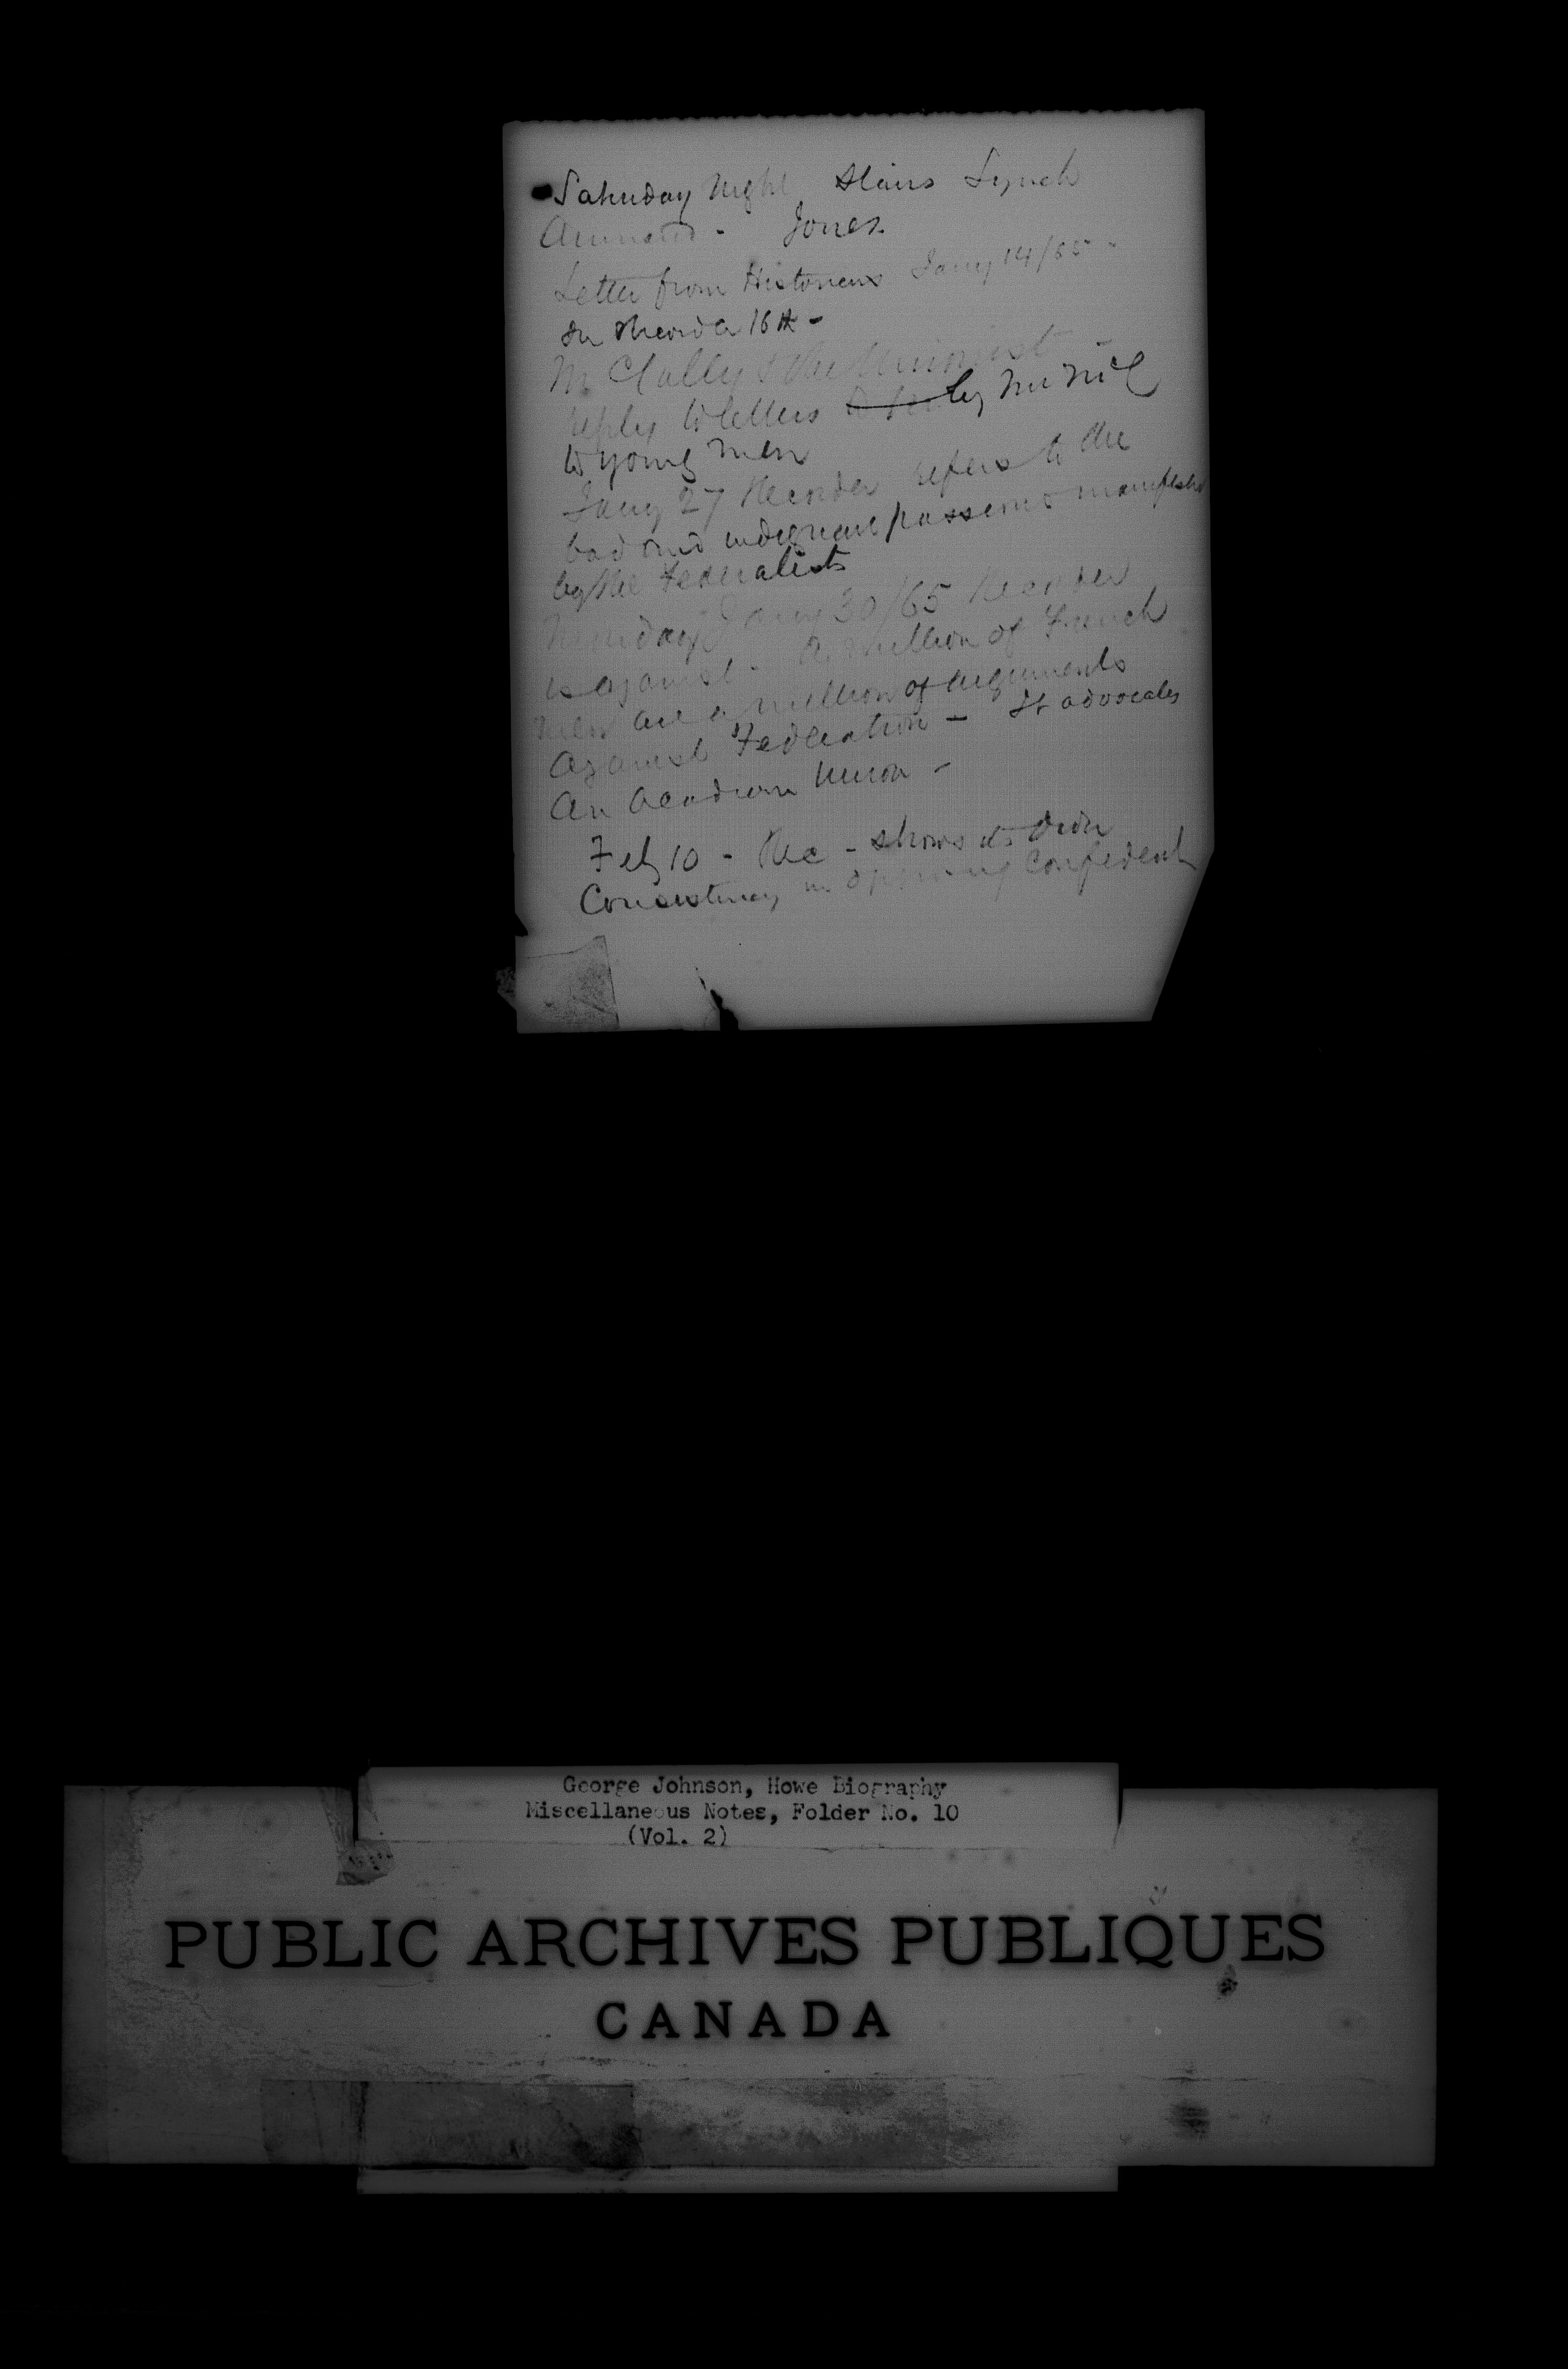 Saturday Night Stairs Lynch
Jones.
Letter from Historicus Jany 14/65 -
In Recorder 16th -
Mc Cully & the Unionist
reply to letters by
to young men
Jany 27 Recorder refers to the
bad and indignant passions manifested
by the Federalists
Jany 30/65 Recorder
is against - A million of French
men are a million of arguments
against Federation - It advocates
An Acadian Union -
Feby 10 - Rec - shows its own
Consistency in opposing Confederat
George Johnson, Howe Biography
Miscellaneous Notes, Folder No. 10
(Vol. 2)
PUBLIC ARCHIVES PUBLIQUES
CANADA